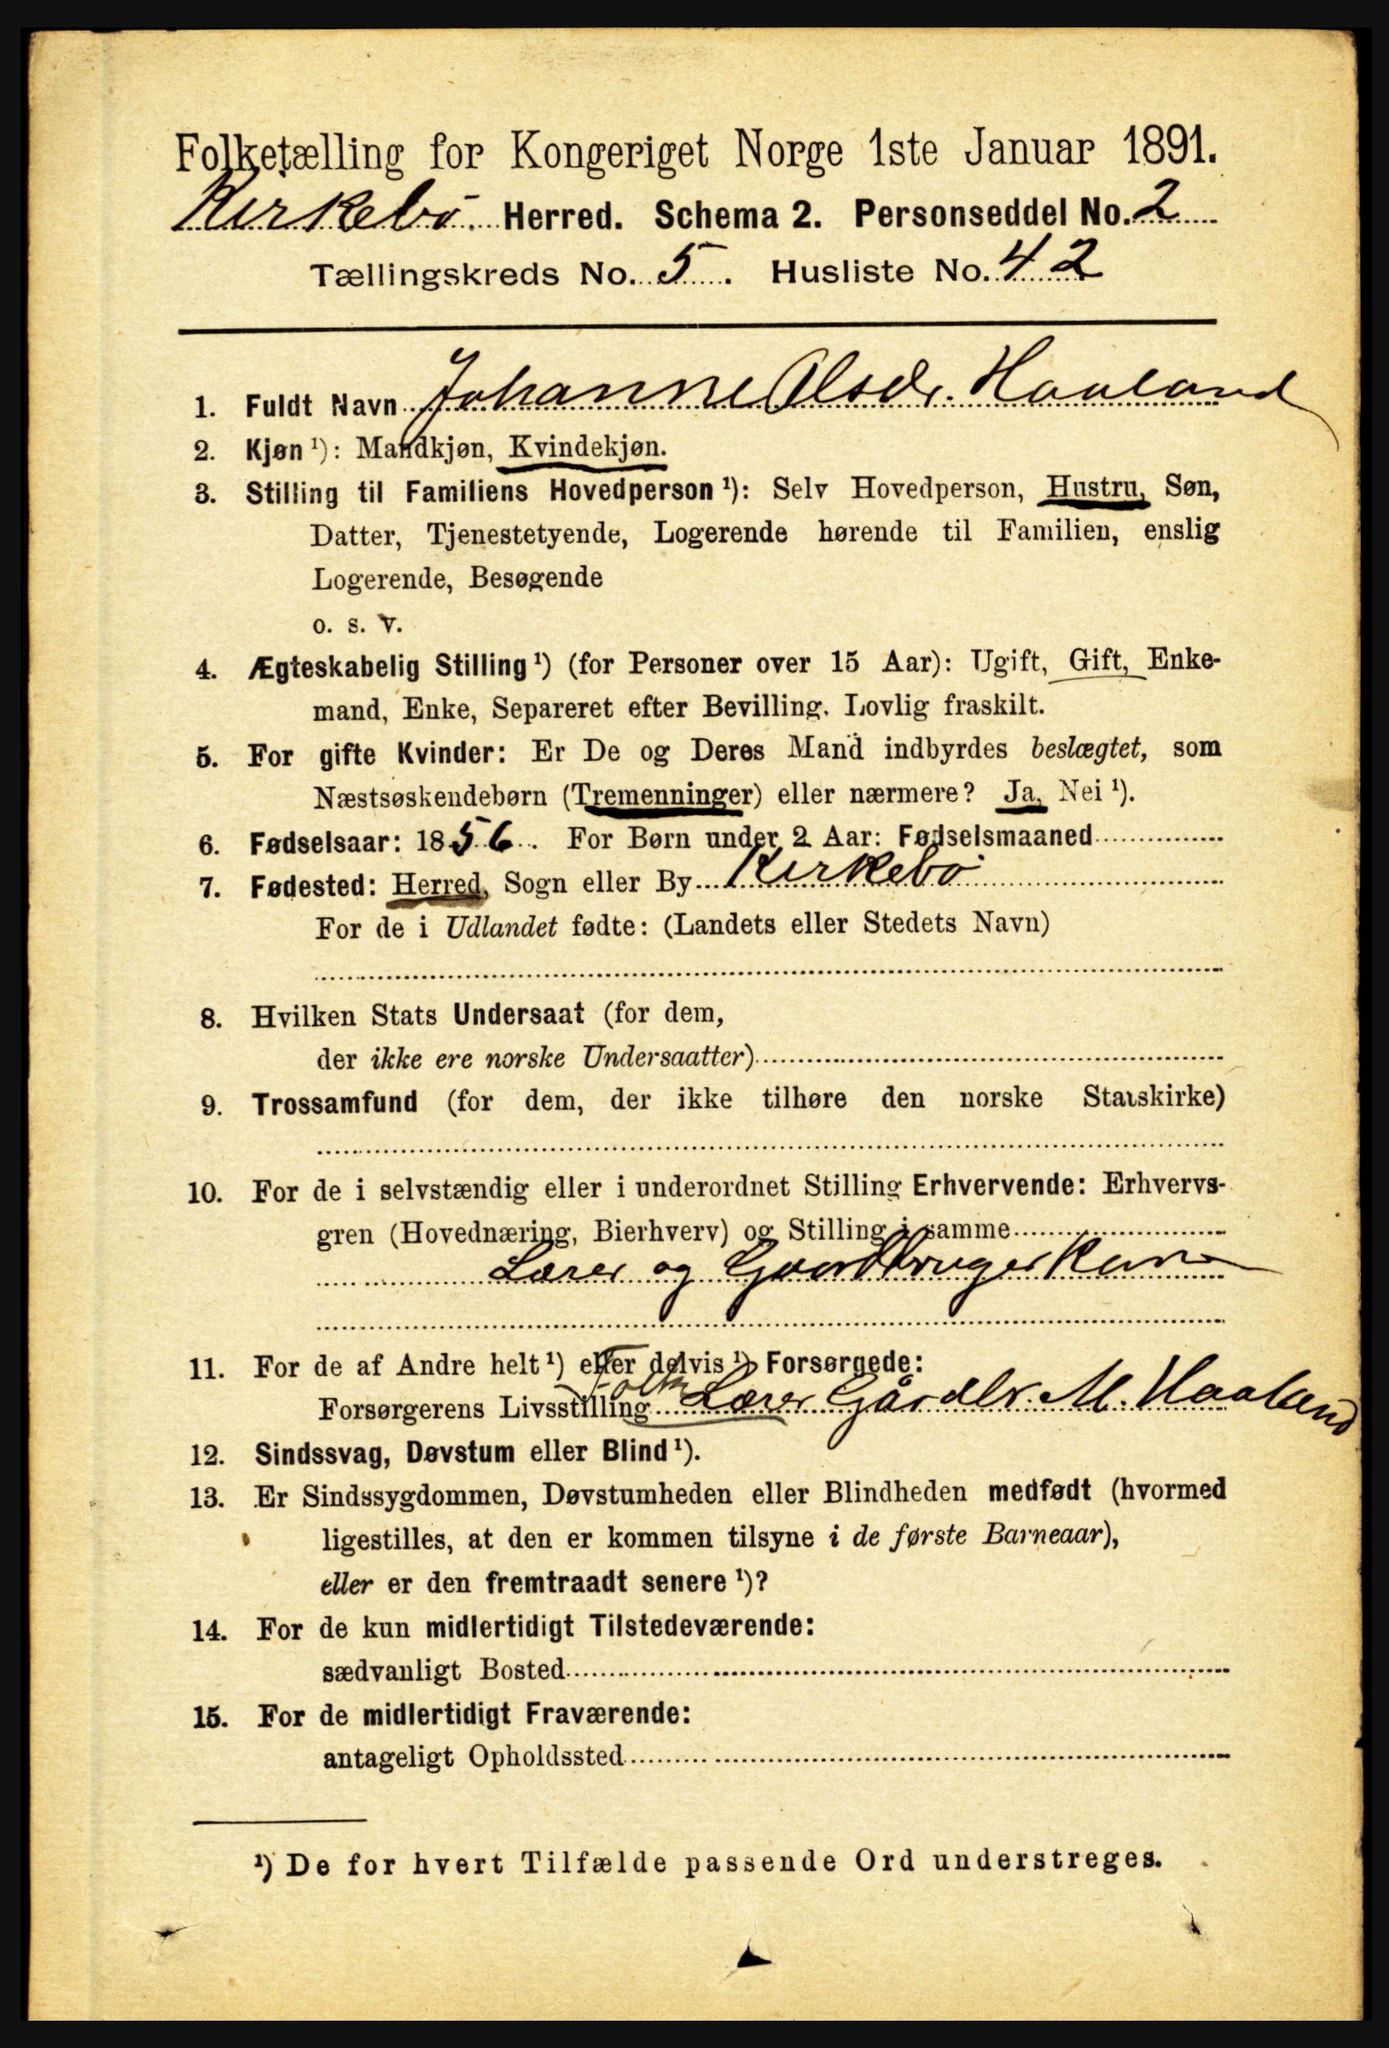 Folketælling for Kongeriget Norge 1ste Januar 1891.
Kirkebø Herred. Schema 2. Personseddel No. 2
Tællingskreds No. 5. Husliste No. 42
1. Fuldt Navn Johanne Olsdr. Haaland
2. Kjøn ¹): Mandkjøn, Kvindekjøn.
3. Stilling til Familiens Hovedperson ¹): Selv Hovedperson, Hustru, Søn,
Datter, Tjenestetyende, Logerende hørende til Familien, enslig
Logerende, Besøgende
o. s. v.
4. Ægteskabelig Stilling ¹) (for Personer over 15 Aar): Ugift, Gift, Enke-
mand, Enke, Separeret efter Bevilling. Lovlig fraskilt.
5. For gifte Kvinder: Er De og Deres Mand indbyrdes beslægtet, som
Næstsøskendebørn (Tremenninger) eller nærmere? Ja, Nei ¹).
6. Fødselsaar: 1856. For Børn under 2 Aar: Fødselsmaaned
7. Fødested: Herred, Sogn eller By Kirkebø
For de i Udlandet fødte: (Landets eller Stedets Navn)
8. Hvilken Stats Undersaat (for dem,
der ikke ere norske Undersaatter)
9. Trossamfund (for dem, der ikke tilhøre den norske Statskirke)
10. For de i selvstændig eller i underordnet Stilling Erhvervende: Erhvervs-
gren (Hovednæring, Bierhverv) og Stilling i samme
Lærer og Gaardbruger Kone
11. For de af Andre helt ¹) eller delvis ¹) Forsørgede:
Forsørgerens Livsstilling Lærer Gårdbr. M. Haaland
12. Sindssvag, Døvstum eller Blind ¹).
13. Er Sindssygdommen, Døvstumheden eller Blindheden medfødt (hvormed
ligestilles, at den er kommen tilsyne i de første Barneaar),
eller er den fremtraadt senere ¹)?
14. For de kun midlertidigt Tilstedeværende:
sædvanligt Bosted
15. For de midlertidigt Fraværende:
antageligt Opholdssted
¹) De for hvert Tilfælde passende Ord understreges.